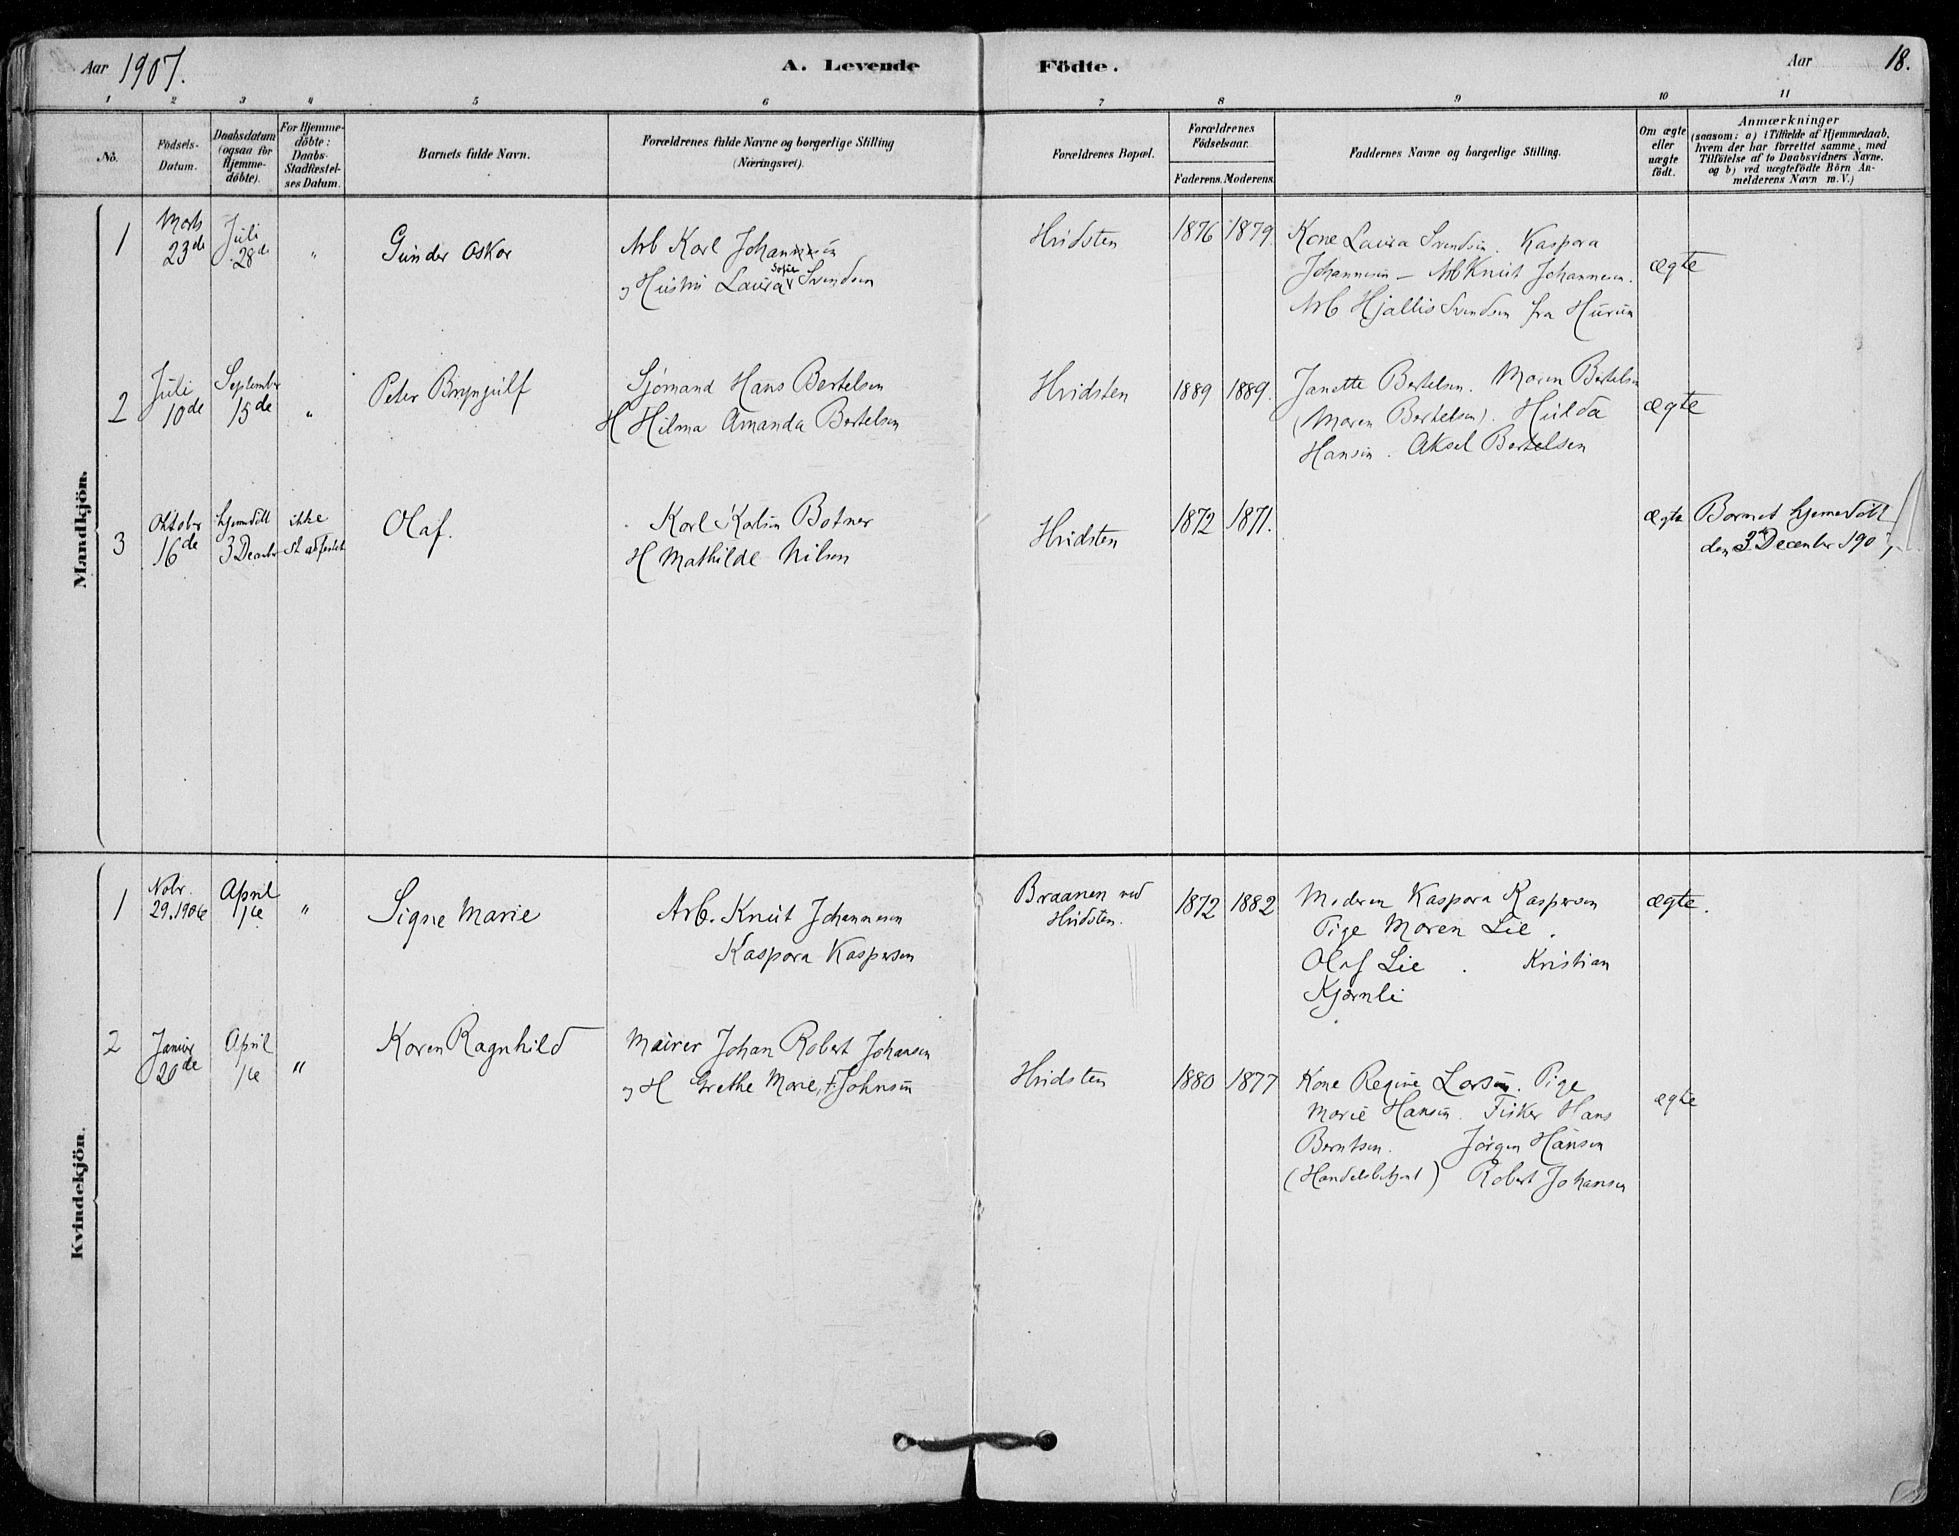 Aar 1907.
A. Levende Födte.
Aar 18.
1 2 3 4 5 6 7 8 9 10 11
No.
Födsels-
Datum.
Daabsdatum
(ogsaa for
Hjemme-
döbte).
For Hjemme-
döbte:
Daabs-
Stadfæstel-
ses Datum.
Barnets fulde Navn.
Forældrenes fulde Navne og borgerlige Stilling
(Næringsvei).
Forældrenes Bopæl.
Forældrenes
Födselsaar.
Faderens. Moderens.
Faddernes Navne og borgerlige Stilling.
Om ægte
eller
uægte
födt.
Anmærkninger
(saasom: a) i Tilfælde af Hjemmedaab,
hvem der har forrettet samme, med
Tilföielse af to Daabsvidners Navne,
og b) ved uægtefödte Börn An-
melderens Navn m. V.)
Mandkjön.
1
Marts
23de
Juli
28de
"
Gunder Oskar
Arb Karl Johannesen
og Hustru Laura Sofie Svendsen
Hvidsten
1876 1879
Kone Laura Svendsen. Kaspara
Johannesen - Arb Knut Johannesen.
Arb Hjallis Svendsen fra Hurum
ægte
2
Juli
10de
September
15de
"
Peter Brynjulf
Sjømand Hans Bertelsen
H Hilma Amanda Bertelsen
Hvidsten
1889 1889.
Janette Bertelsen. Maren Bertelsen
(Maren Bertelsen). Hulda
Hansen. Aksel Bertelsen
ægte
3
Oktober
16de
hjemmedöbt
3 December
ikke
stadfæstet
Olaf.
Karl Karlsen Botner
H Mathilde Nilsen
Hvidsten
1872 1871.
ægte
Barnet hjemmedöbt
den 3de December 1907,
Kvindekjön.
1
Novbr.
29. 1906
April
1ste
"
Signe Marie
Arb. Knut Johannesen
Kaspara Kaspersen
Braanen ved
Hvidsten.
1872 1882
Moderen Kaspara Kaspersen
Pige Maren Lie.
Olaf Lie. Kristian
Kjærnli
ægte.
2
Januar
20de
April
1ste
"
Karen Ragnhild
Murer Johan Robert Johansen
og H Grethe Marie, f. Johnsen
Hvidsten
1880 1877
Kone Regine Larsen. Pige
Marie Hansen. Fisker Hans
Berntsen. Jørgen Hansen
(Handelsbetjent) Robert Johansen
ægte